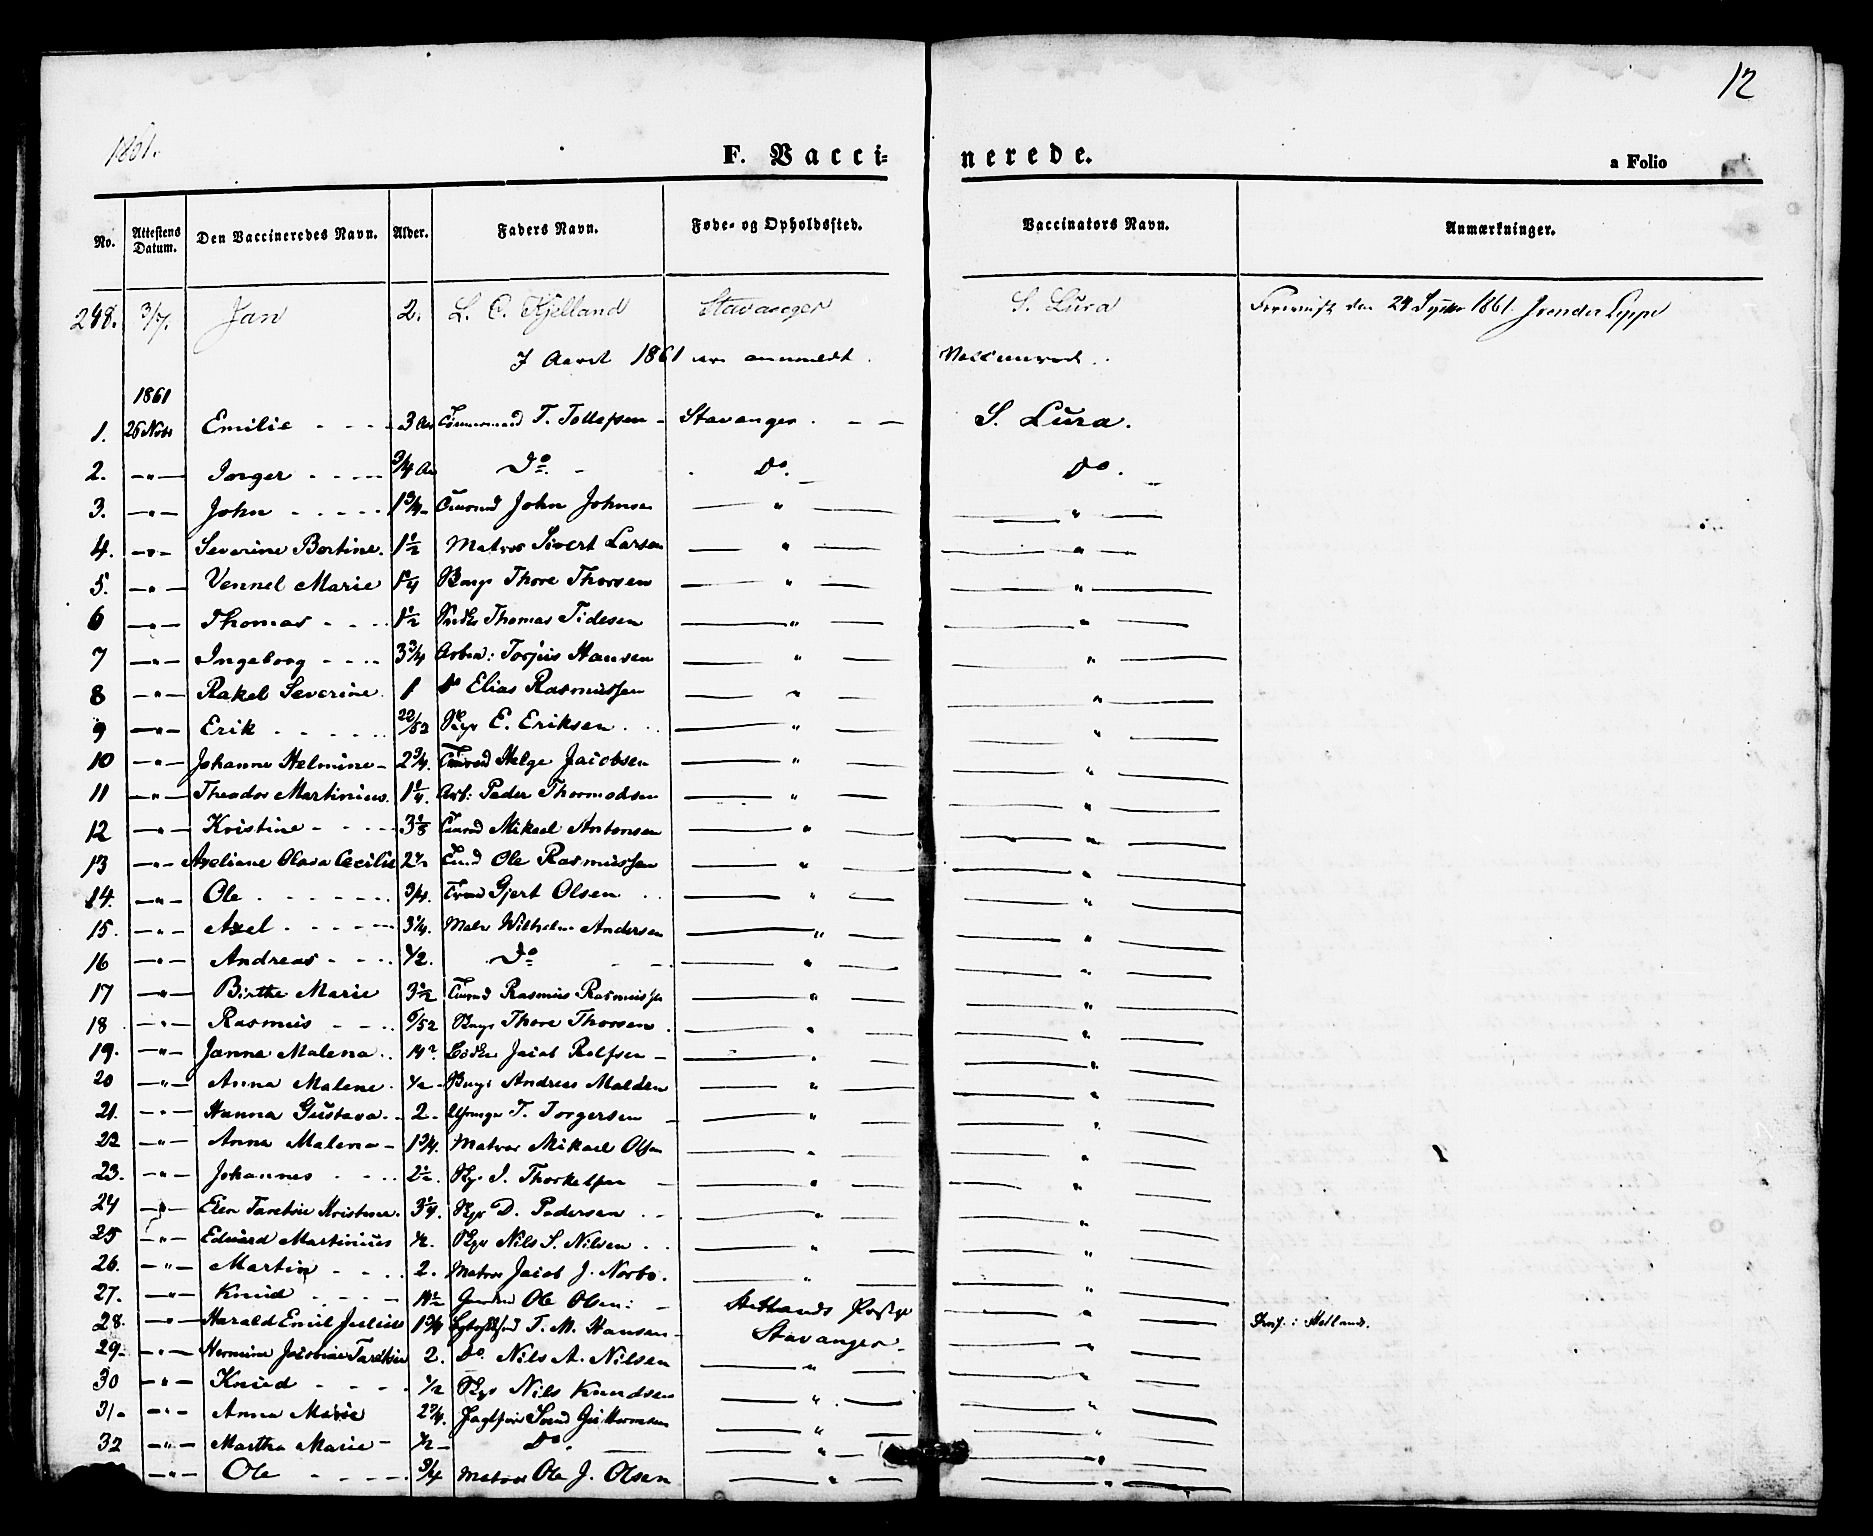 12
1861.
F. Vacci= nerede. a Folio
No. Attestens Datum. Den Vaccineredes Navn. Alder. Faders Navn. Føde- og Opholdssted. Vaccinators Navn. Anmærkninger.
248. 3/7. Jan 2. L. C. Kjelland Stavanger S. Lura den 24 1861.
I Aaret 1861 ere anmeldt Vaccinerede.
1861
1. 25 Novbr Emilie - - - - 3 Aar Tømmermand T. Tollefsen - Stavanger. - - S. Lura.
2. -"- Inger - - - - 3/4 Aar Do. - Do. Do.
3. -"- John - - - - - 1 3/4 - John Johnsen - " - - " -
4. -"- Severine Bertine. 1 1/2 Matros Sivert Larsen - " - - " -
5. -"- Vennel Marie 1 1/4 Thore Thorsen - " - - " -
6 -"- Thomas - - - 1 1/2 Thomas Tidesen - " - - " -
7 -"- Ingeborg - - - 3 3/4 Arbm: Torjus Hansen - " - - " -
8 -"- Rakel Severine 1 Do Elias Rasmussen - " - - " -
9 -"- Erik - - - - - 22/52 E. Eriksen . . - " - - " -
10 -"- Johanne Helmine - 2 3/4. Helge Jacobsen - " - - " -
11 -"- Theodor Martinius. 1 1/4. Arb: Peder Thormodsen - " - - " -
12 -"- Kristine - - - - 3 1/8 Mikael Antonsen - " - - " -
13 -"- Axeliane Olava Cecilie Ole Rasmussen - " - - " -
14. -"- Ole . - - - - - 3/4. Gjert Olsen . . - " - - " -
15. -"- Axel - - - - - 3 1/4. Wilhelm Andersen - " - - " -
16 -"- Andreas - - - - 1/2. Do - " - - " -
17 -"- Birthe Marie 3 1/2 Rasmus Rasmussen - " - - " -
18 -"- Rasmus - - - 6/52 Thore Thorsen . - " - - " -
19. -"- Janne Malena . . Jacob Rolfsen - - " - - " -
20 -"- Anna Malene . 1/2 - Andreas Malden - " - - " -
21. -"- Hanna Gustava . . 2 - T. Torgersen - - " - - " -
22 -"- Anne Malena - 1 3/4. Matros Mikael Olsen - " - - " -
23. -"- Johannes - - - 2 1/2. I. Thorkelsen - - " - - " -
24 -"- Elen Taretine Kristine. 3 1/4. D. Pedersen . - - " - - " -
25 -"- Edvard Martinius 1/2. Nils S. Nilsen . . - " - - " -
26. -"- Martin - - - . 2. Matros Jacob J. Norbo. - " - - " -
27. -"- Knud - - - - Ole Olsen: - Hetlands - " - : Hetland.
28. -"- Harald Emil Julius 1 3/4 T. M. Hansen - Stavanger -
29 - -"- Hermine Jacobine 2. Do Nils A. Nilsen - " - - " -
30 -"- Knud - - - - 1/2 Nils Knudsen - " - - " -
31 - -"- Anna Marie 2 3/4. - " - - " -
32 -"- Martha Marie - 1/2 - Do. - - " - - " -
-"- Ole - - - - 3/4 Matros Ole J. Olsen - " - - " -